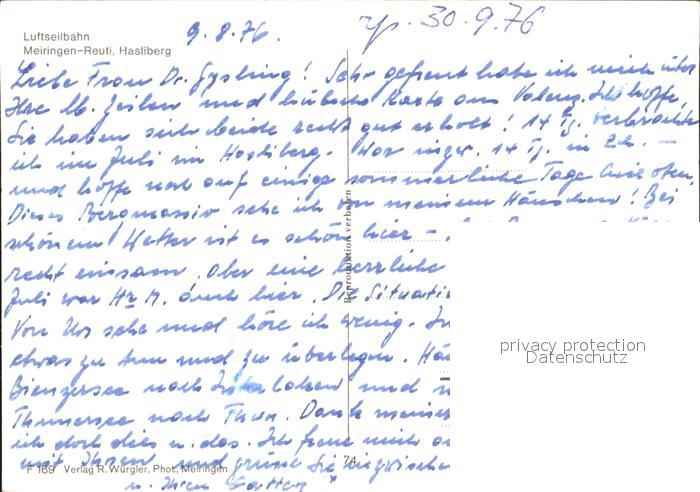 Luftseilbahn
Meiringen-Reuti, Hasliberg
9.8.76.
30.9.76
Liebe Frau Dr. Gysling! Sehr gefreut habe ich mich über
Ihre lb. Zeilen und hübsche Karte aus Valens. Ich hoffe,
Sie haben sich beide recht gut erholt! 14 Tg. verbrachte
ich im Juli im Hasliberg. War inzw. 14 Tg. in
und hoffe noch auf einige sommerliche Tage hier oben.
Dieses Bergmassiv sehe ich von meinem Häuschen! Bei
schönem Wetter ist es schön hier -
recht einsam. Aber eine herrliche
Juli war Hr M. auch hier. Die Situati
Von Urs sehe und höre ich wenig. In
etwas zu tun und zu überlegen.
Brienzersee nach Interlaken und
Thunersee nach Thun. Dank meiner
ich doch dies u. das. Ich freue mich
mit Ihnen und grüsse Sie inzwische
u. Ihren Gatten
Reproduktion verboten
74
F 169 Verlag R. Würgler, Phot., Meiringen
privacy protection
Datenschutz